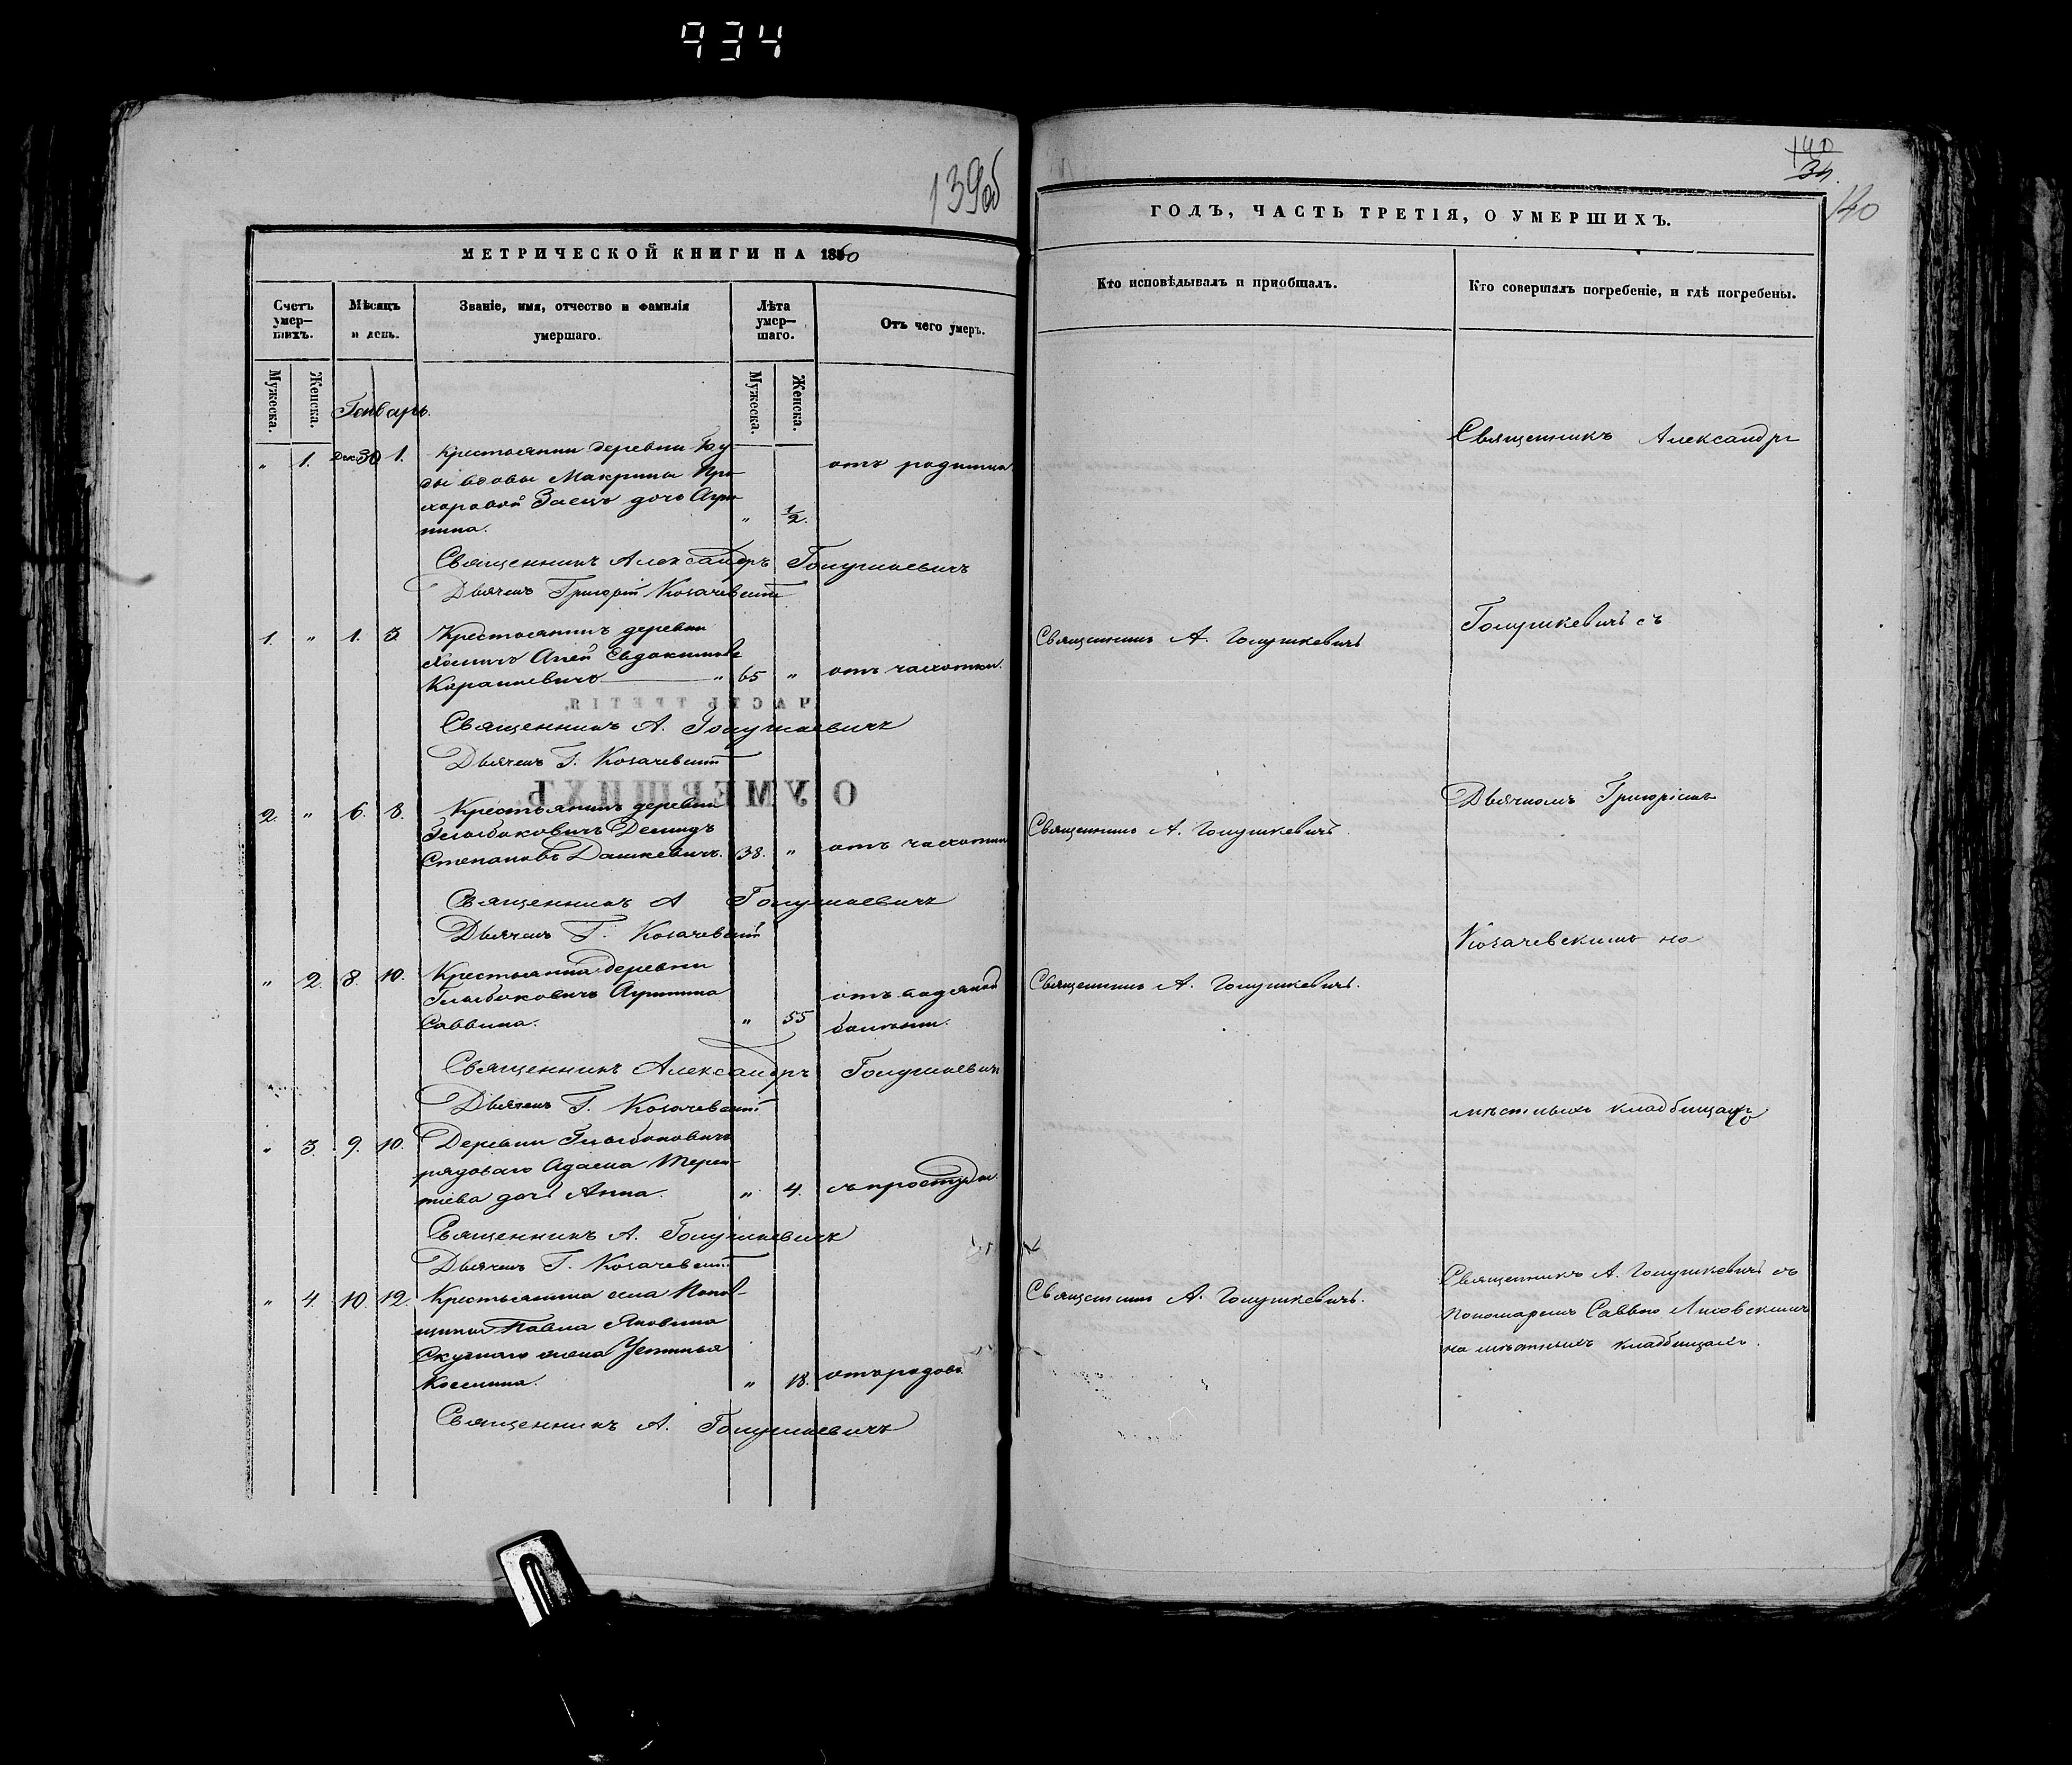 934
139об
МЕТРИЧЕСКОЙ КНИГИ НА 1860
Счетъ умер—шихъ.
Мѣсяцъ и день.
Званіе, имя, отчество и фамилія умершаго.
Лѣта умер—шаго.
Отъ чего умеръ.
Мужеска.
Женска.
Мужеска.
Женска.
Генварь.
" 1. Дек. 30 1. Крестьянки деревни Бу
ды вдовы Макрины Про
хоровой Заецъ дочь Агри
пина. " 1/2. отъ родимца
Священникъ Александръ Голушкевичъ
Дьячекъ Григорій Козачевскій
1. " 1. 3. Крестьянинъ деревни
Евдокимовъ
" 65 " отъ чахотки.
Священникъ А. Голушкевичъ
Дьячекъ Г. Козачевскій
2. " 6. 8. Крестьянинъ деревни
Глыбоковичъ Демидъ
Степановъ Дашкевичъ. 38. " отъ чахотки
Священникъ А Голушкевичъ
Дьячекъ Г. Козачевскій
" 2. 8. 10. Крестьянка деревни
Глыбоковичъ Агрипина
Саввина. " 55 отъ водяной
болезни.
Священникъ Александръ Голушкевичъ
Дьячекъ Г. Козачевскій
" 3. 9. 10. Деревни Глыбоковичъ
рядоваго Адама Терен
тіева дочь Анна. " 4. съ простуды
Священникъ А. Голушкевичъ
Дьячекъ Г. Козачевскій
" 4. 10. 12. Крестьянина села Попов
щины Павла Яковлева
жена Устинья
Космина. " 18. отъ родовъ
Священникъ А. Голушкевичъ
140
34.
140
ГОДЪ, ЧАСТЬ ТРЕТІЯ, О УМЕРШИХЪ.
Кто исповѣдывалъ и приобщалъ.
Кто совершалъ погребеніе, и гдѣ погребены.
Священникъ Александръ
Священникъ А. Голушкевичъ
Голушкевичъ съ
Дьячкомъ Григоріемъ
Священникъ А. Голушкевичъ.
Козачевскимъ на
Священникъ А. Голушкевичъ.
мѣстныхъ кладбищахъ
Священникъ А. Голушкевичъ.
Священникъ А. Голушкевичъ съ
пономаремъ Саввою Лисовскимъ
на мѣстныхъ кладбищахъ.
ЧАСТЬ ТРЕТІЯ,
О УМЕРШИХЪ.